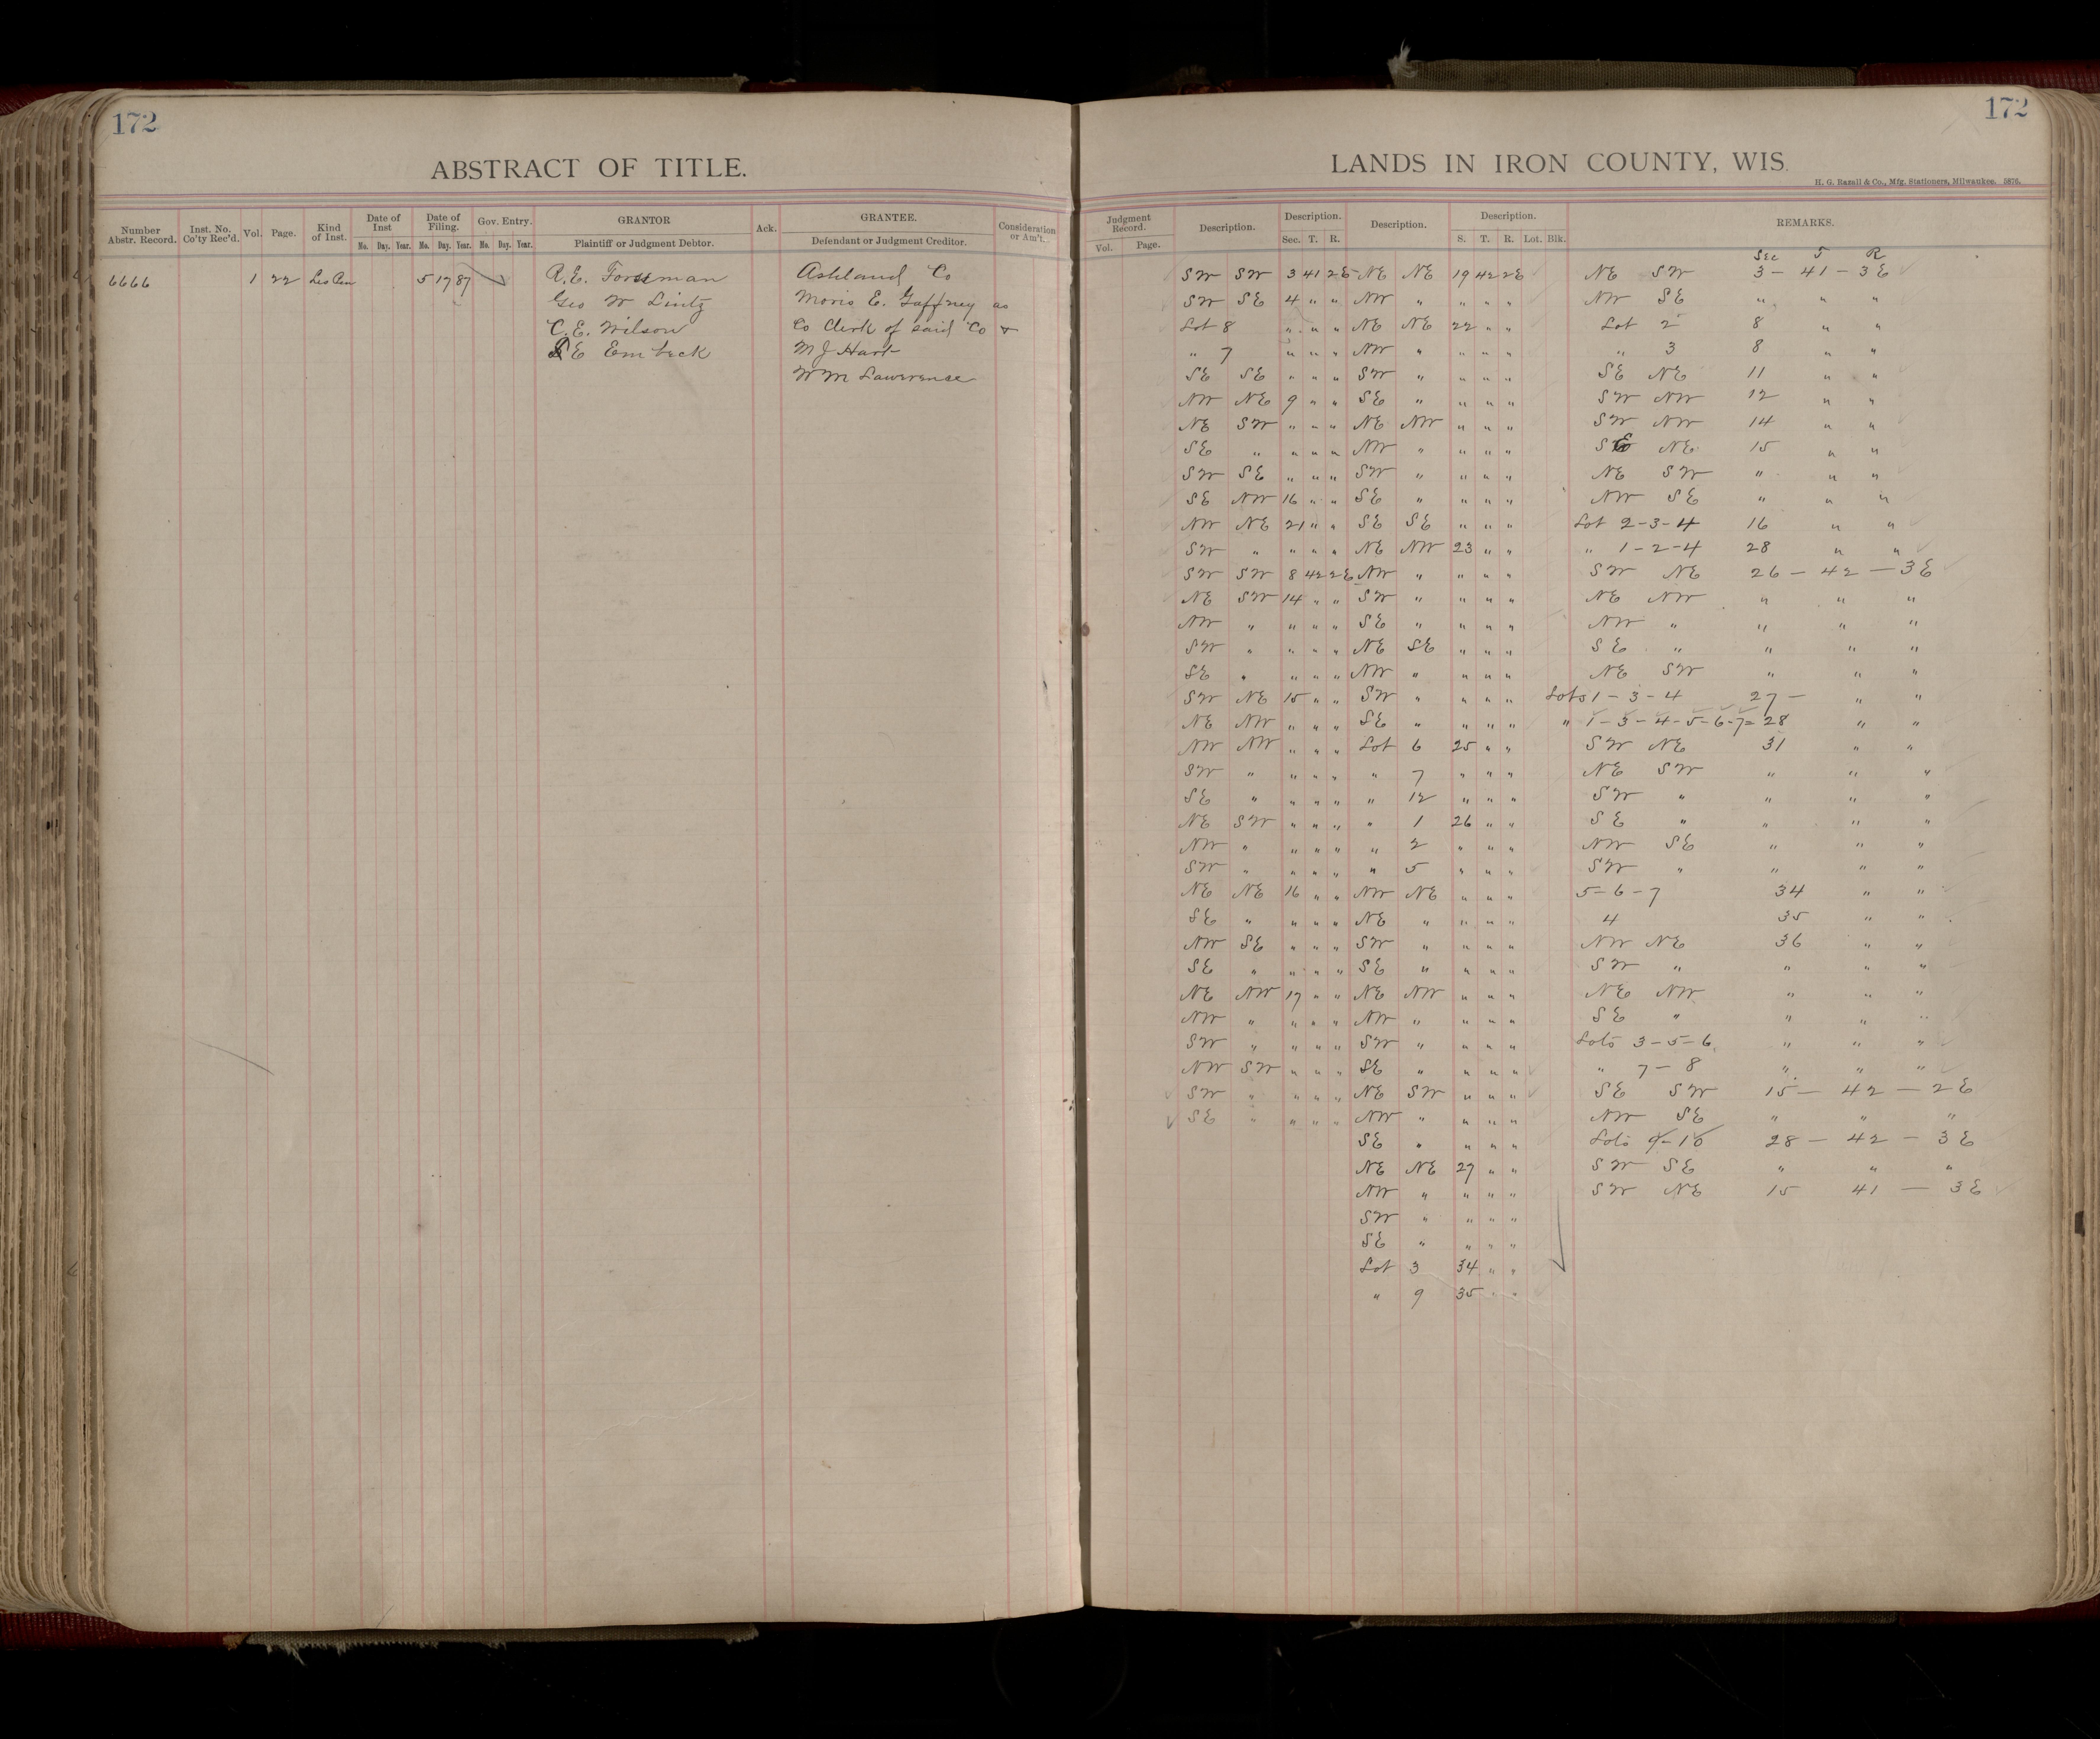 172
ABSTRACT OF TITLE.
Number Abstr. Record. Inst. No. Co'ty Rec'd. Vol. Page. Kind of Inst. Date of Inst Mo. Day. Year. Date of Filing. Mo. Day. Year. Gov. Entry. Mo. Day. Year. GRANTOR Plaintiff or Judgment Debtor. Ack. GRANTEE. Defendant or Judgment Creditor. Consideration or Am't.
6666 1 22 Lis Pen 5 17 87 R.E. Forseman Ashland Co
Geo W Lintz Moris E. Gaffney as
C.E. Wilson Co Clerk of said Co &
E Embeck M J Hart
Wm Lawerence
172
LANDS IN IRON COUNTY, WIS.
H. G. Razall & Co., Mfg. Stationers, Milwaukee. 5876.
Judgment Record. Vol. Page. Description. Description. Sec. T. R. Description. Description. S. T. R. Lot. Blk. REMARKS.
Sec T R
SW SW 3 41 2E NE NE 19 42 2E NE SW 3 - 41 - 3E
SW SE 4 " " NW " " " " NW SE " " "
Lot 8 " " " NE NE 22 " " Lot 2 8 " "
" 7 " " " NW " " " " " 3 8 " "
SE SE " " " SW " " " " SE NE 11 " "
NW NE 9 " " SE " " " " SW NW 12 " "
NE SW " " " NE NW " " " SW NW 14 " "
SE " " " " NW " " " " SE NE 15 " "
SW SE " " " SW " " " " NE SW " " "
SE NW 16 " " SE " " " " NW SE " " "
NW NE 21 " " SE SE " " " Lot 2-3-4 16 " "
SW " " " " NE NW 23 " " " 1-2-4 28 " "
SW SW 8 42 2E NW " " " " SW NE 26 - 42 - 3E
NE SW 14 " " SW " " " " NE NW " " "
NW " " " " SE " " " " NW " " " "
SW " " " " NE SE " " " SE " " " "
SE " " " " NW " " " " NE SW " " "
SW NE 15 " " SW " " " " Lots 1-3-4 27 - " "
NE NW " " " SE " " " " " 1-3-4-5-6-7= 28 " "
NW NW " " " Lot 6 25 " " SW NE 31 " "
SW " " " " " 7 " " " NE SW " " "
SE " " " " " 12 " " " SW " " " "
NE SW " " " " 1 26 " " SE " " " "
NW " " " " " 2 " " " NW SE " " "
SW " " " " " 5 " " " SW " " " "
NE NE 16 " " NW NE " " " 5-6-7 34 " "
SE " " " " NE " " " " 4 35 " "
NW SE " " " SW " " " " NW NE 36 " "
SE " " " " SE " " " " SW " " " "
NE NW 17 " " NE NW " " " NE NW " " "
NW " " " " NW " " " " SE " " " "
SW " " " " SW " " " " Lots 3-5-6 " " "
NW SW " " " SE " " " " " 7-8 " " "
SW " " " " NE SW " " " SE SW 15 - 42 - 2E
SE " " " " NW " " " " NW SE " " "
SE " " " " Lots 9-10 28 - 42 - 3E
NE NE 27 " " SW SE " " "
NW " " " " SW NE 15 41 - 3E
SW " " " "
SE " " " "
Lot 3 34 " "
" 9 35 " "